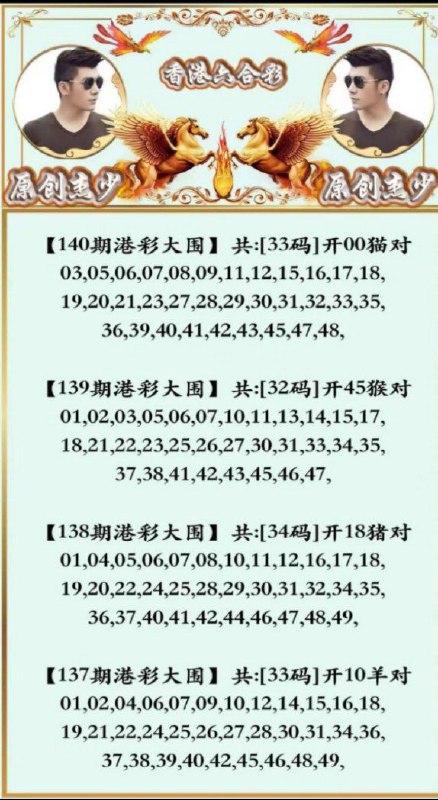 香港六合彩
原创杰少 原创杰少
【140期港彩大围】 共:[33码]开00猫对
03,05,06,07,08,09,11,12,15,16,17,18,
19,20,21,23,27,28,29,30,31,32,33,35,
36,39,40,41,42,43,45,47,48,
【139期港彩大围】 共:[32码]开45猴对
01,02,03,05,06,07,10,11,13,14,15,17,
18,21,22,23,25,26,27,30,31,33,34,35,
37,38,41,42,43,45,46,47,
【138期港彩大围】 共:[34码]开18猪对
01,04,05,06,07,08,10,11,12,16,17,18,
19,20,22,24,25,28,29,30,31,32,34,35,
36,37,40,41,42,44,46,47,48,49,
【137期港彩大围】 共:[33码]开10羊对
01,02,04,06,07,09,10,12,14,15,16,18,
19,21,22,24,25,26,27,28,30,31,34,36,
37,38,39,40,42,45,46,48,49,